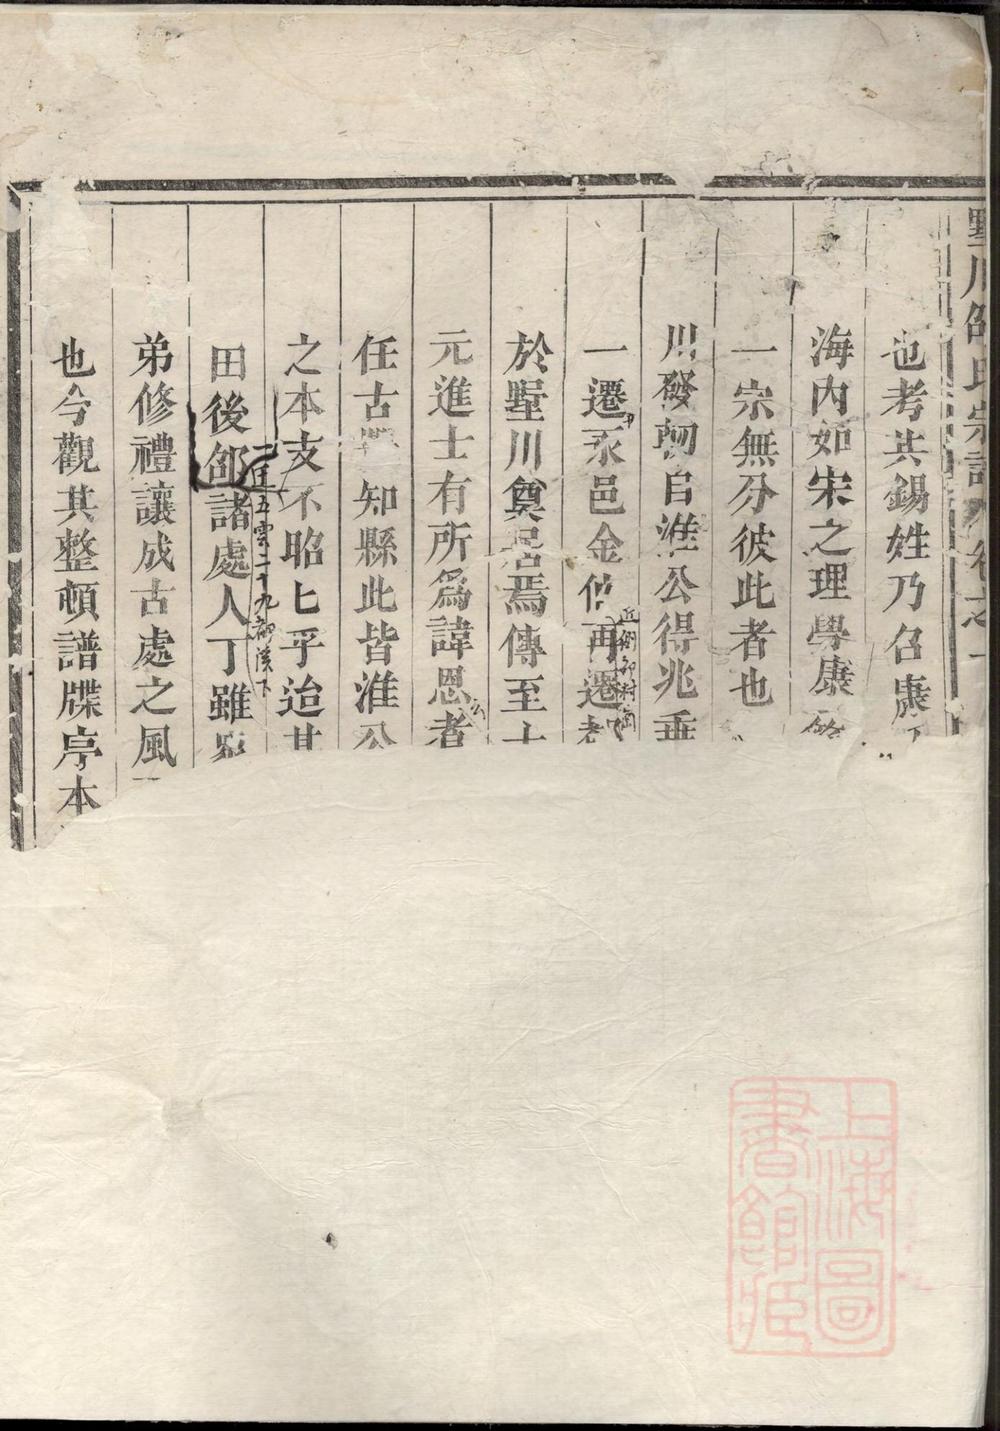 墅川邵氏宗譜 卷之一
也考其錫姓乃召康
海内如宋之理學康
一宗無分彼此者也
川發軔自淮公得兆垂
一遷永邑金再遷
近側
於墅川奠居焉傳至
元進士有所為諱恩者
任古知縣此皆淮公
之本支不昭匕乎迨其
五雲二十九都溪下
田後邵諸處人丁雖
弟修禮讓成古處之風
也今觀其整頓譜牒序本
上海圖書館藏